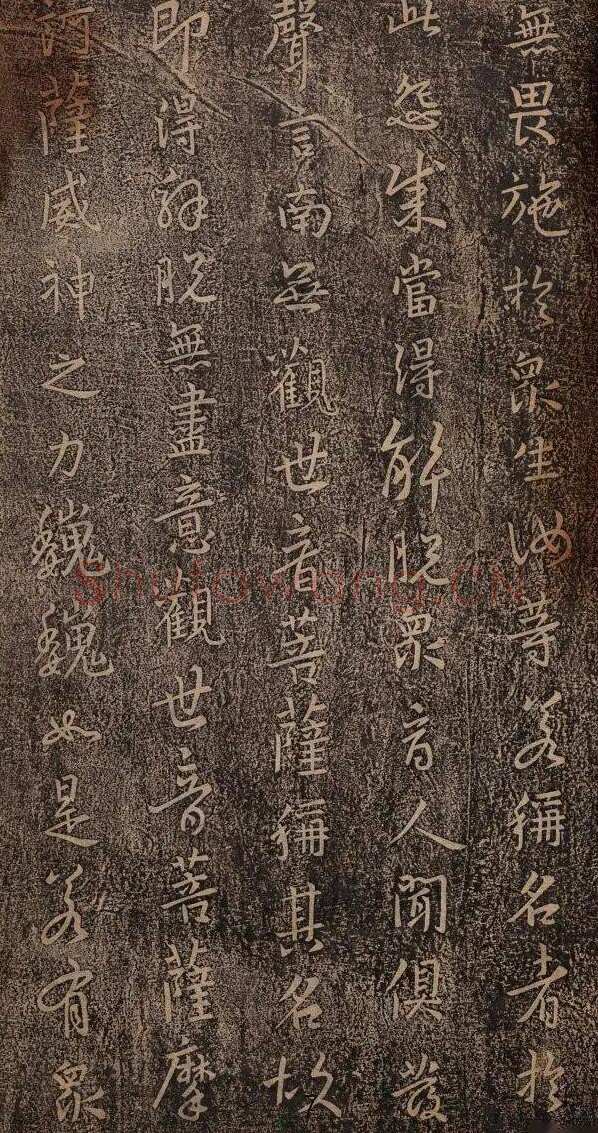 無畏施於眾生汝等若稱名者於
此怨賊當得解脫眾商人聞俱發
聲言南無觀世音菩薩稱其名故
即得解脫無盡意觀世音菩薩摩
訶薩威神之力巍巍如是若有眾
shufawang.CN